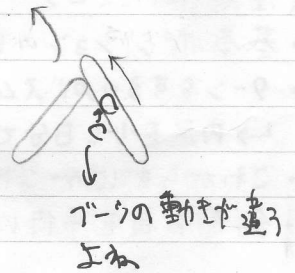 ブーツの動きが違う
よね